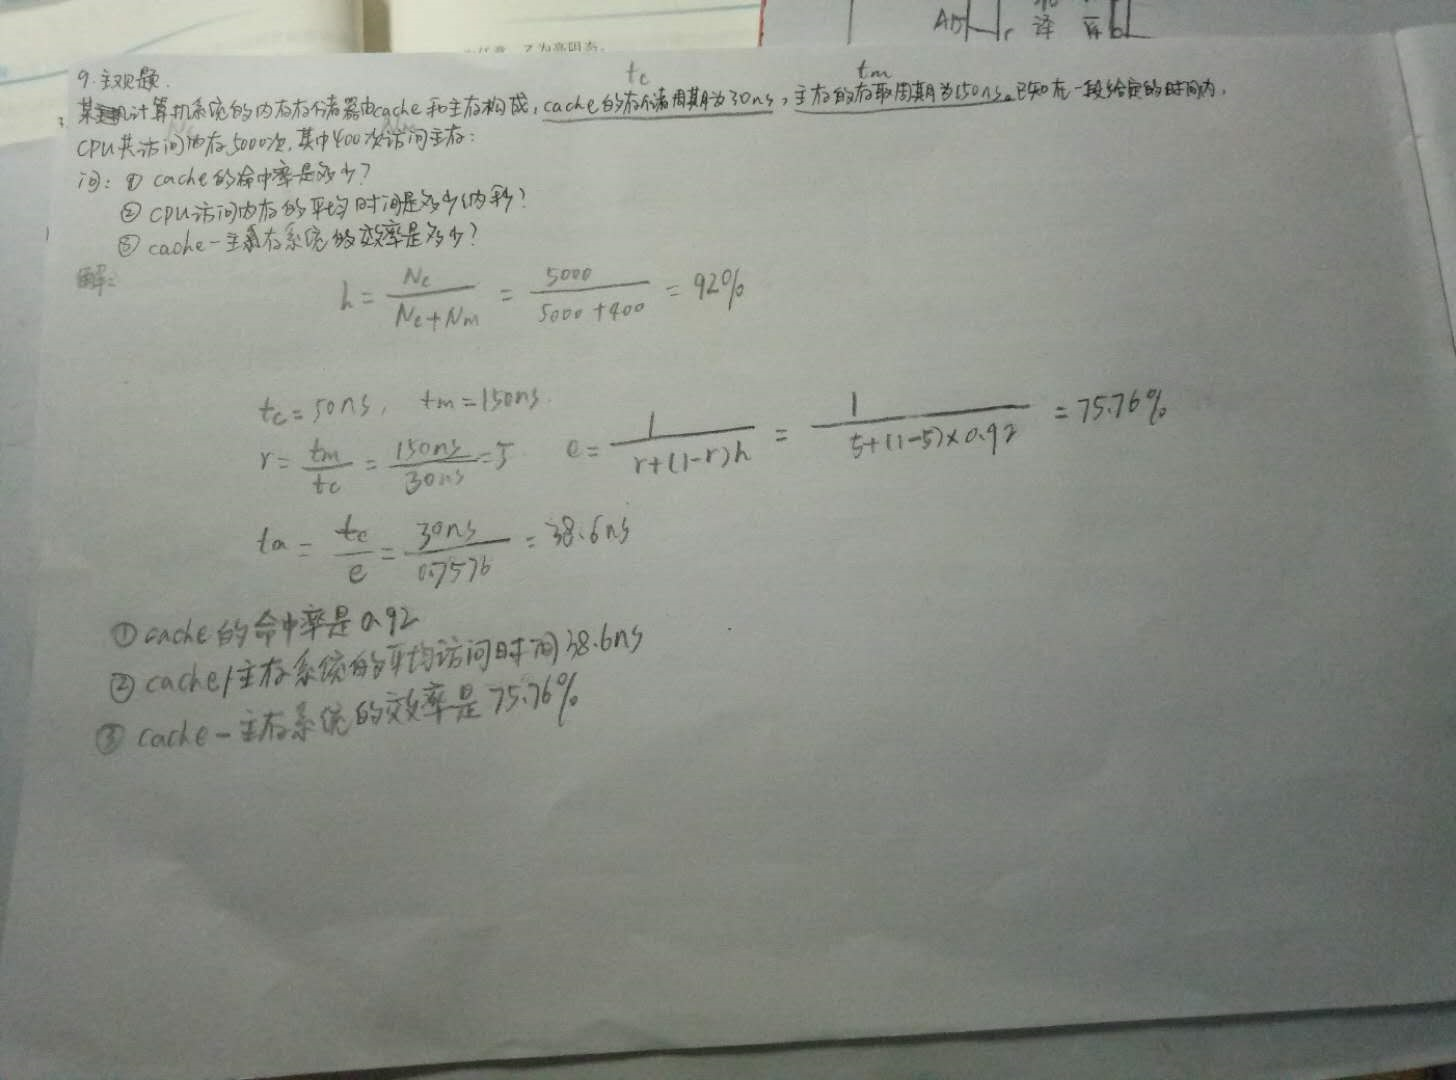 Z为高阻态。
译
9.主观题.
tc
tm
某计算机系统的内存存储器由cache和主存构成,cache的存储周期为30ns,主存的存取周期为150ns。已知在一段给定的时间内,
CPU共访问内存5000次,其中400次访问主存:
问: ① cache的命中率是多少?
② CPU访问内存的平均时间是多少纳秒?
③ cache-主存系统的效率是多少?
解:
h = Nc / (Nc+Nm) = 5000 / (5000+400) = 92%
tc=50ns, tm=150ns.
r = tm/tc = 150ns/30ns = 5 e = 1 / (r+(1-r)h) = 1 / (5+(1-5)×0.92) = 75.76%
ta = tc/e = 30ns/0.7576 = 38.6ns
① cache的命中率是0.92
② cache/主存系统的平均访问时间38.6ns
③ cache-主存系统的效率是75.76%